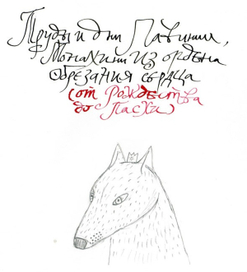 Труды и дни Лавинии,
Монахини из ордена
обрезания сердца
(от Рождества
до Пасхи)